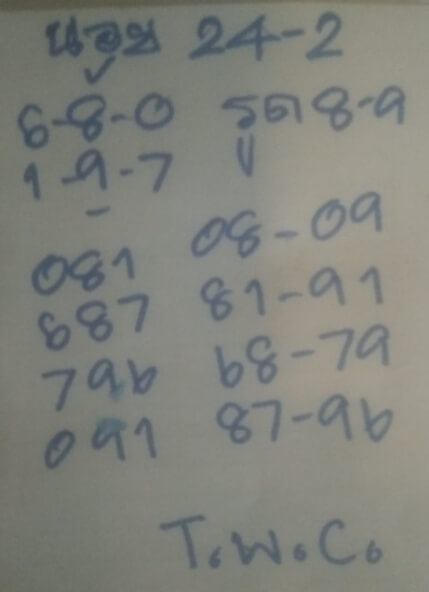 นอย 24-2
6-8-0 รูด 8-9
1-9-7
081 08-09
687 81-91
796 68-79
091 87-96
T.W.C.